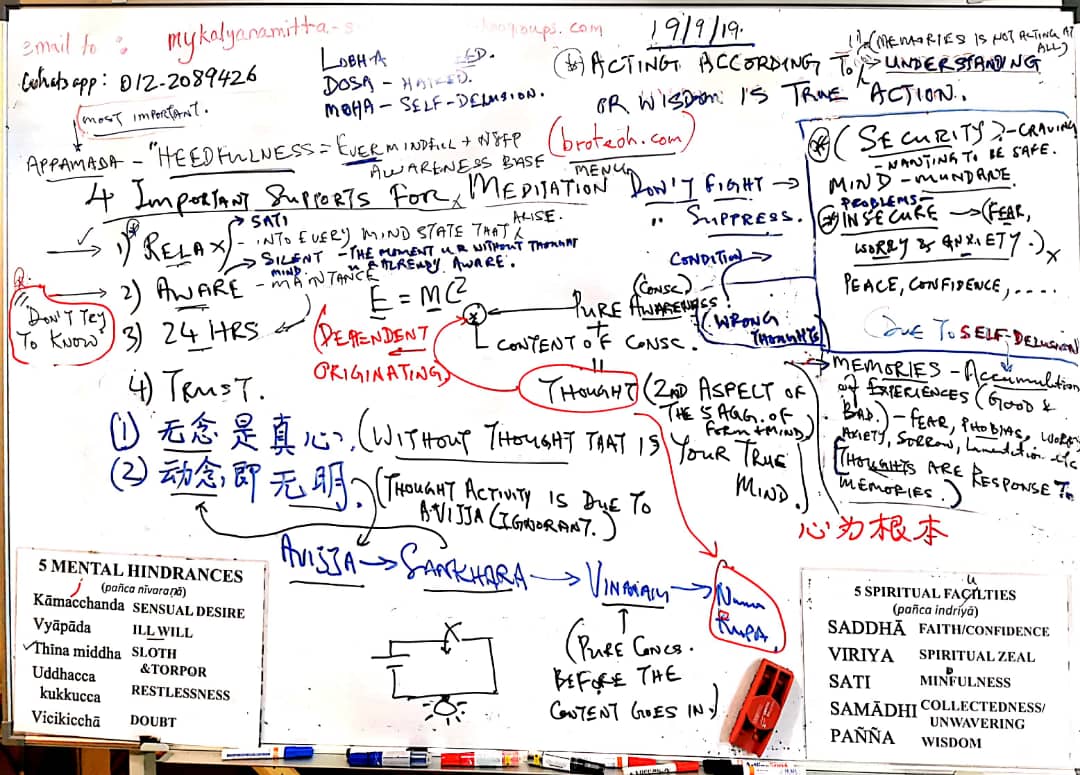 Email to : mykalyanamitta-s
19/9/19.
Whatsapp : 012-2089426
LOBHA
DOSA - HATRED.
MOHA - SELF-DELUSION.
ACTING ACCORDING TO UNDERSTANDING
OR WISDOM IS TRUE ACTION.
(MEMORIES IS NOT ACTING AT ALL)
MOST IMPORTANT.
APPAMADA - "HEEDFULNESS = EVER MINDFUL +
AWARENESS BASE
(broteoh.com)
MENU
4 IMPORTANT SUPPORTS FOR MEDITATION
1) RELAX
SATI
- INTO EVERY MIND STATE THAT ARISE.
SILENT MIND. - THE MOMENT U R WITHOUT THOUGHT
U R ALREADY AWARE.
2) AWARE - MAINTANCE
3) 24 HRS
4) TRUST.
"DON'T TRY
TO KNOW"
DON'T FIGHT
" SUPPRESS.
(SECURITY) - CRAVING
- WANTING TO BE SAFE.
MIND - MUNDANE
PROBLEMS -
INSECURE → (FEAR,
WORRY & ANXIETY.)
PEACE, CONFIDENCE, ....
DUE TO SELF-DELUSION
CONDITION
E = MC²
(DEPENDENT
ORIGINATING)
(CONSC)
PURE AWARENESS
+
CONTENT OF CONSC.
(WRONG
THOUGHTS)
THOUGHT (2ND ASPECT OF
THE 5 AGG. OF
FORM + MIND)
MEMORIES - Accumulation
of EXPERIENCES (GOOD &
BAD.) - FEAR, PHOBIAS, WORRY,
ANXIETY, SORROW, Lamentation etc
[THOUGHTS ARE RESPONSE TO
MEMORIES.)
(1) 无念是真心, (WITHOUT THOUGHT THAT IS YOUR TRUE
MIND.)
(2) 动念,即无明. (THOUGHT ACTIVITY IS DUE TO
AVIJJA (IGNORANT.)
心为根本
AVIJJA → SANKHARA → → Nama
RUPA.
(PURE CONCS.
BEFORE THE
CONTENT GOES IN)
5 MENTAL HINDRANCES
(pañca nīvaraṇā)
Kāmacchanda SENSUAL DESIRE
Vyāpāda ILL WILL
Thina middha SLOTH
&TORPOR
Uddhacca
kukkucca RESTLESSNESS
Vicikicchā DOUBT
5 SPIRITUAL FACILTIES
(pañca indriyā)
SADDHĀ FAITH/CONFIDENCE
VIRIYA SPIRITUAL ZEAL
SATI MINFULNESS
SAMĀDHI COLLECTEDNESS/
UNWAVERING
PAÑÑA WISDOM